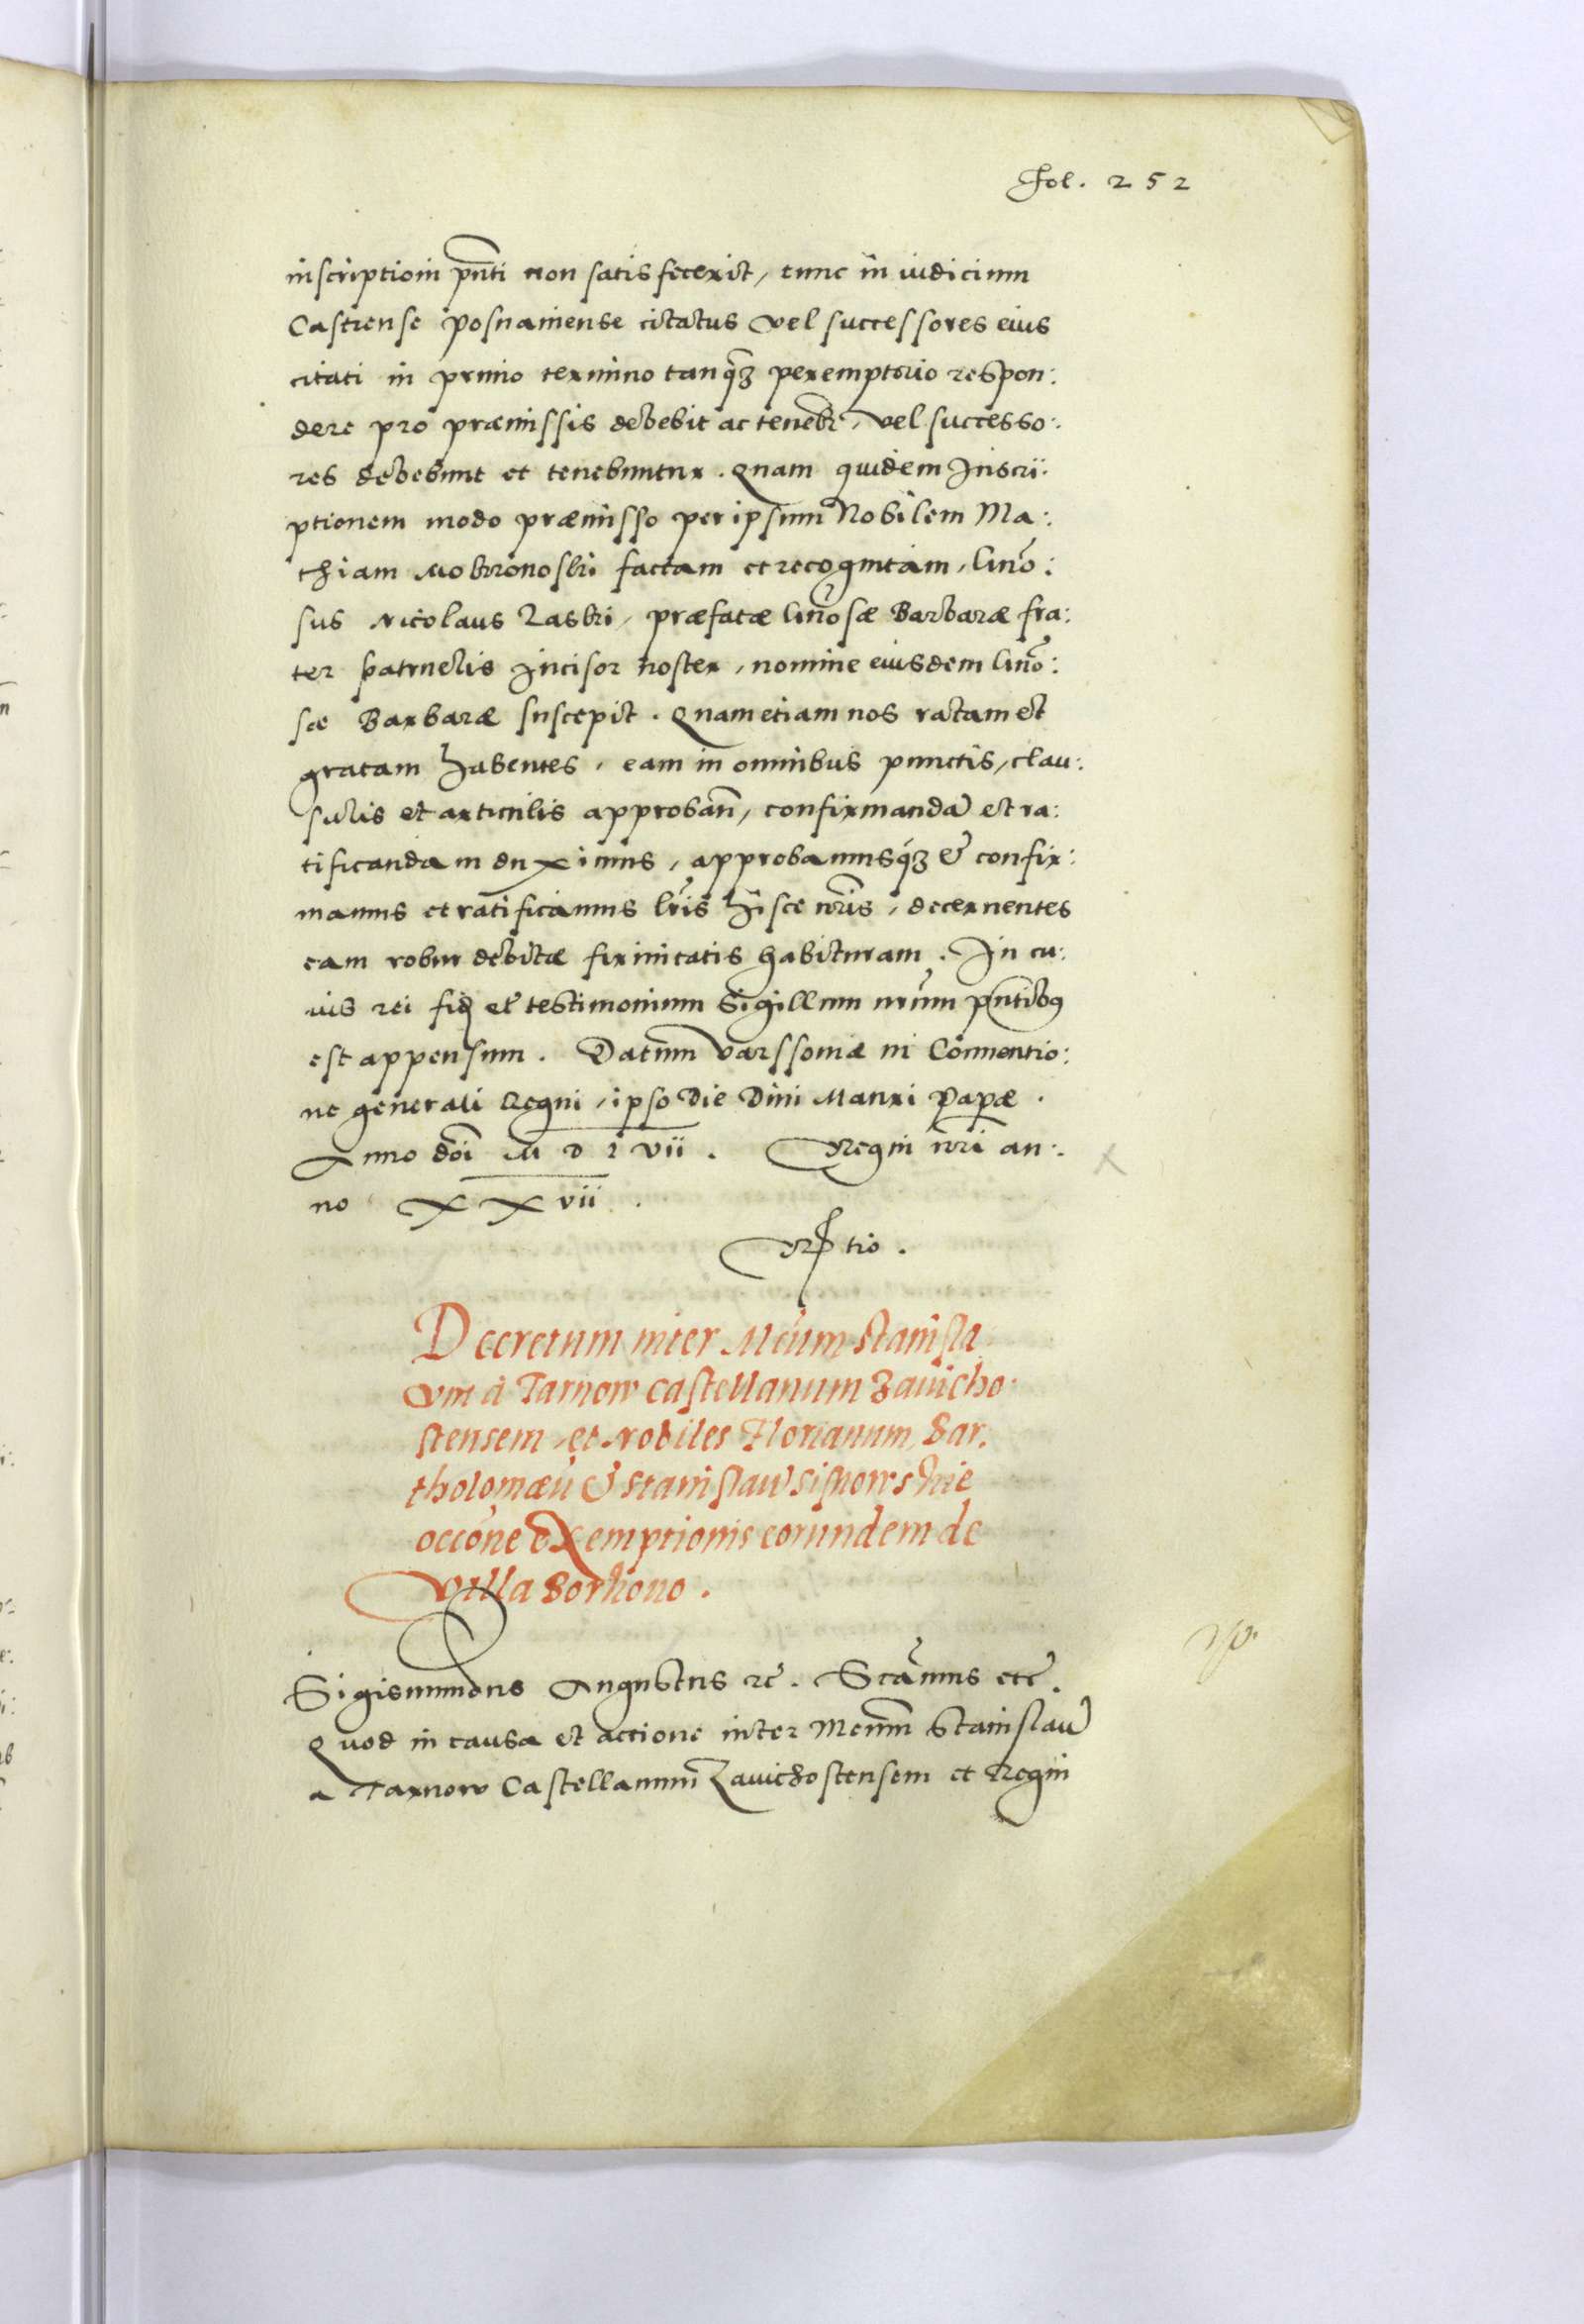 Fol. 252
inscriptioni pnti non satisfecerit, tunc in iudicium
Castrense posnaniense citatus vel successores eius
citati in primo termino tanq̃ʒ peremptorio respon:
dere pro præmissis debebit ac tenebr, vel successo:
res debebunt et tenebuntur. Quam quidem Inscri:
ptionem modo præmisso per ipsum Nobilem Ma:
thiam Mokronoski factam et recognitam, Gnõ:
sus Nicolaus Laski, præfatæ Gnosæ Barbaræ fra:
ter patruelis Incisor noster, nomine eiusdem Gnõ:
sæ Barbaræ suscepit. Quam etiam nos ratam et
gratam habentes, eam in omnibus punctis, clau:
sulis et articulis approbañ, confirmandã et ra:
tificandam duximus, approbamusq́ʒ & confir:
mamus et ratificamus lr̃is hisce nr̃is, decernentes
eam robur debitæ firmitatis habituram. In cu:
ius rei fidē et testimonium Sigillum nr̃um pñtibus
est appensum. Datum Varssoniæ in Conuentio:
ne generali Regni, ipso Die Diui Mauri Papæ.
Anno doi M D L vii. Regni nr̃i an:
no XX vii.
Rptio.
Decretum inter Mcum Stanisla
vm à Tarnow Castellanum Zauicho:
stensem, et Nobiles Florianum, Bar:
tholomæũ & Stanislaũ Sisnowskie
occõne exemptionis eorundem de
Villa Borkono.
Sigismundus Augustus etc̃. Scãmus etc̃.
Quod in causa et actione inter Mcum Stanislaũ
a Tarnow Castellanum Zauichostensem et Regni